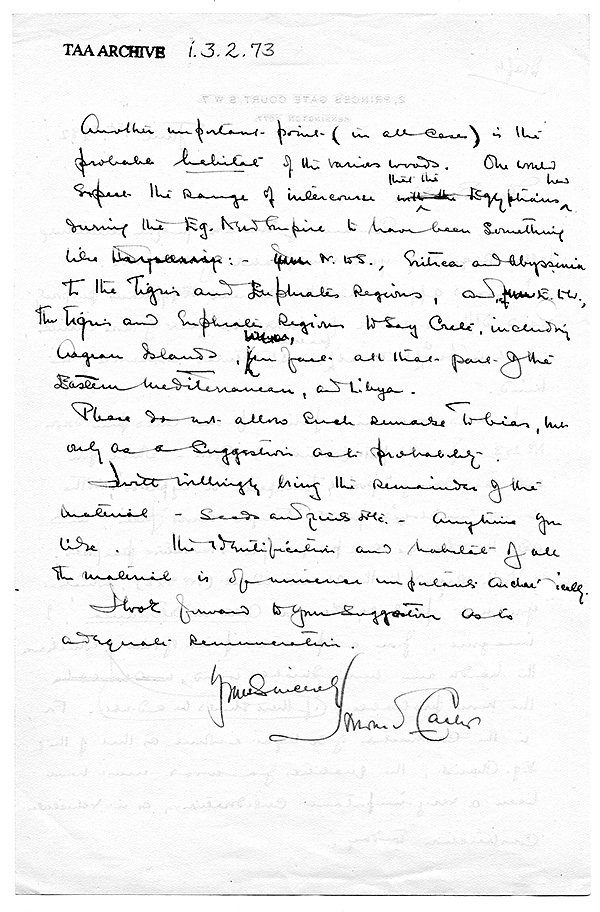 TAA ARCHIVE i.3.2.73
Another important point (in all cases) is the
probable habitat of the various woods. One would
expect the range of intercourse that the Egyptians had
during the Eg. New Empire to have been something
like :- N. to S., Eritrea and Abyssinia
to the Tigris and Euphrates Regions, and E. to W.,
the Tigris and Euphrates Regions to say Crete, including
Aegean Islands, in fact all that part of the
Eastern Mediterranean, and Libya.
Please do not allow such remarks to bias, but
only as a suggestion as to probability.
I will willingly bring the remainder of the
material - seeds and fruits etc. - anything you
like. The identification and habitat of all
the material is of immense importance archaeologically.
I look forward to your suggestion as to
adequate remuneration.
Yours Sincerely
Howard Carter